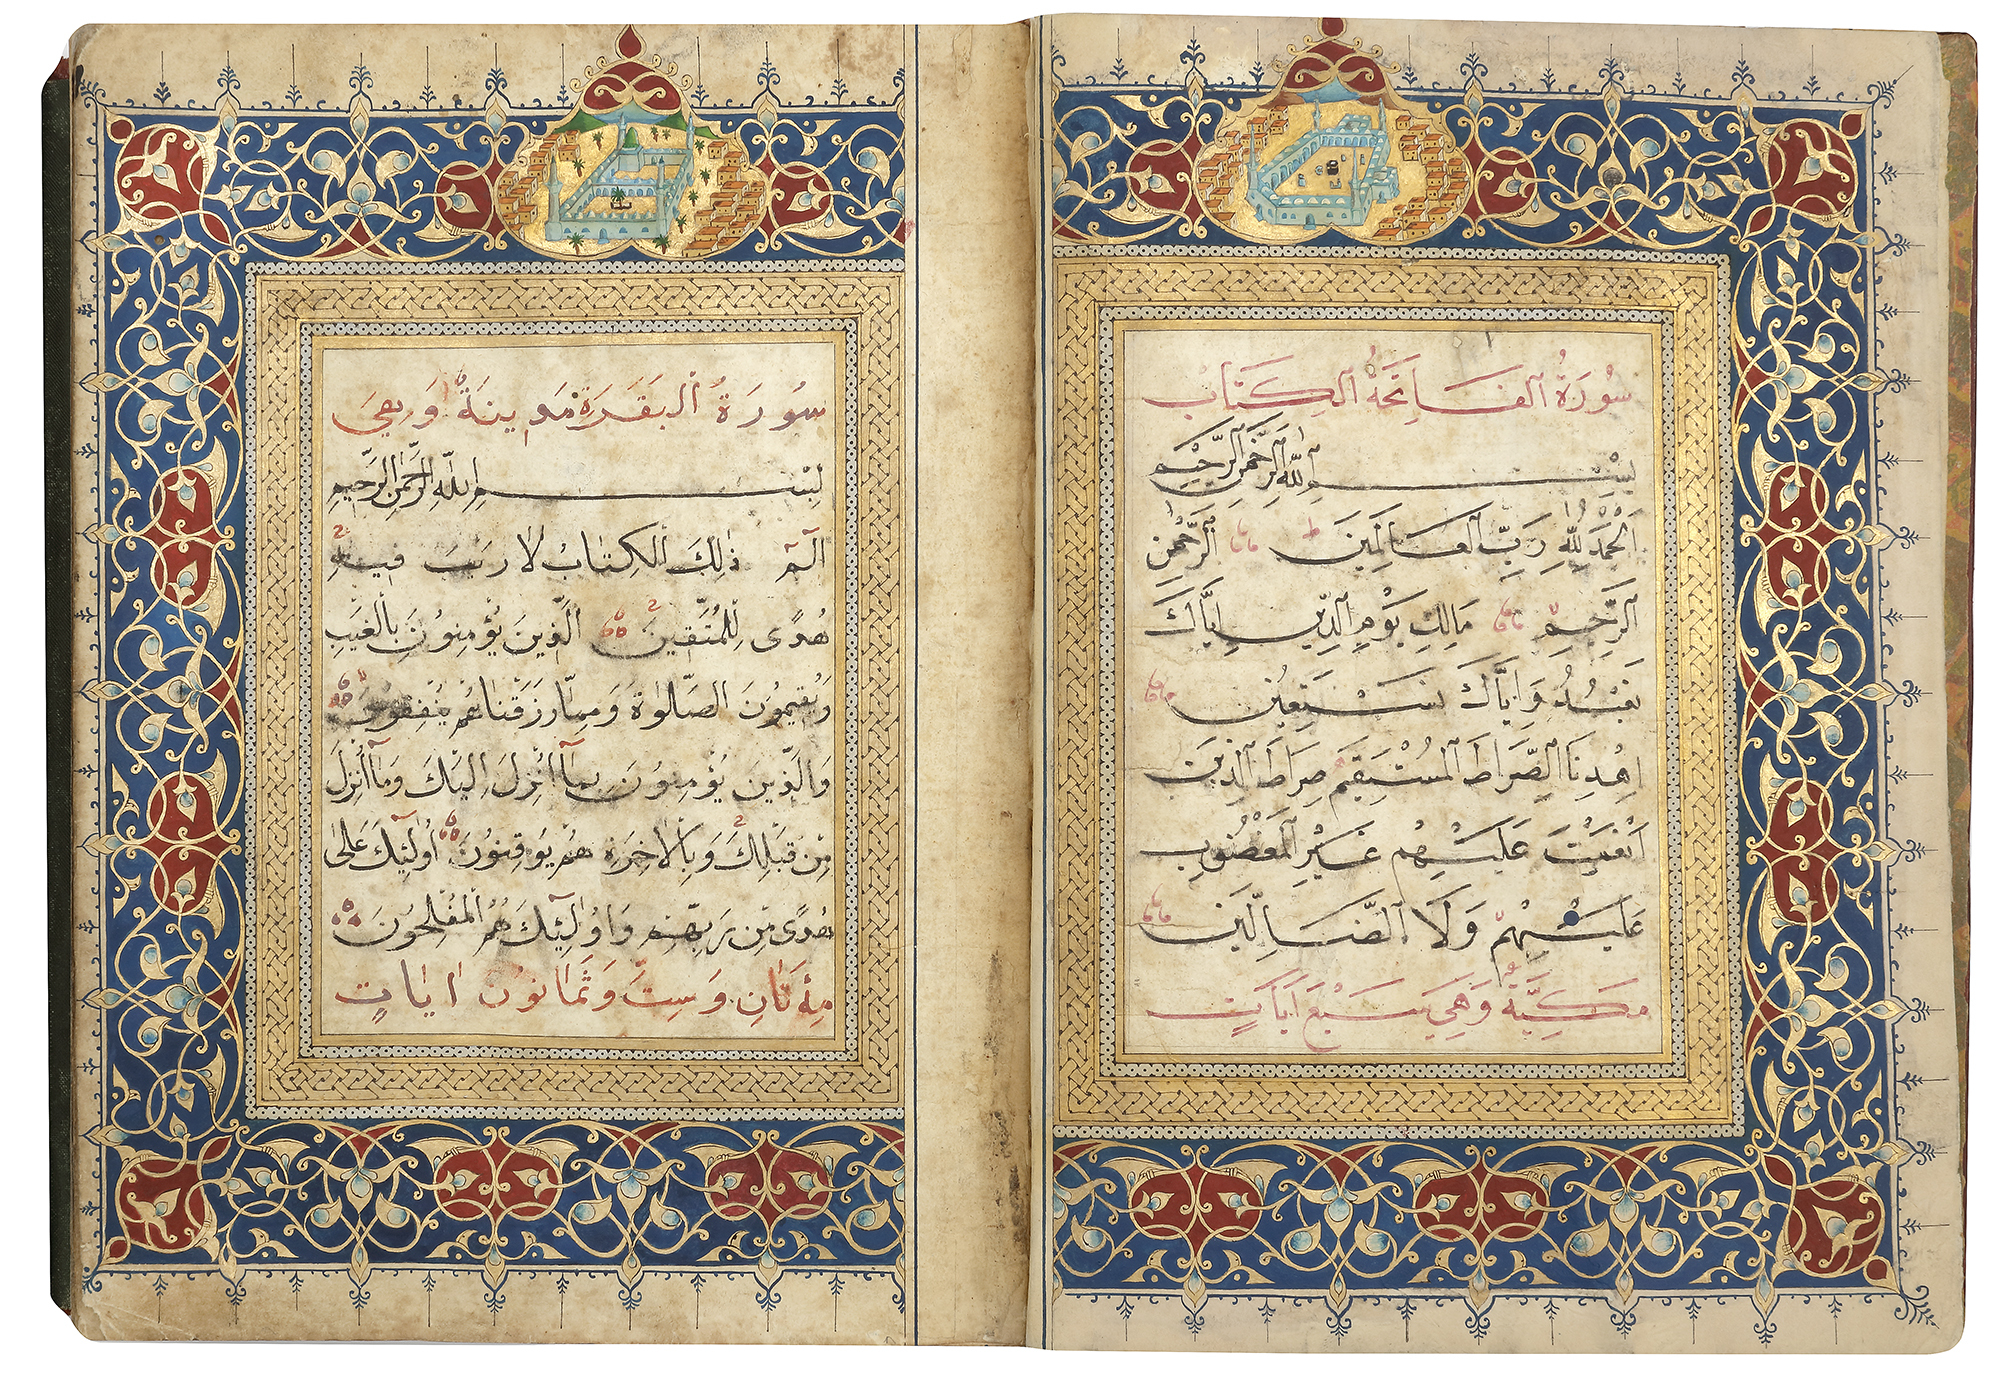 سُورَةُ الفَاتِحَةُ الكِتَابُ
بِسْمِ اللّٰهِ الرَّحْمٰنِ الرَّحِيْمِ
اَلْحَمْدُ لِلّٰهِ رَبِّ الْعَالَمِيْنَ الرَّحْمٰنِ
الرَّحِيْمِ مَالِكِ يَوْمِ الدِّيْنِ اِيَّاكَ
نَعْبُدُ وَاِيَّاكَ نَسْتَعِيْنُ
اِهْدِنَا الصِّرَاطَ الْمُسْتَقِيْمَ صِرَاطَ الَّذِيْنَ
اَنْعَمْتَ عَلَيْهِمْ غَيْرِ الْمَغْضُوْبِ
عَلَيْهِمْ وَلَا الضَّالِّيْنَ
مَكِيَّةٌ وَهِيَ سَبْعَ اٰيَاتٍ
سُورَةُ البَقَرَةِ مَدِينَةٌ وَهِيَ
بِسْمِ اللّٰهِ الرَّحْمٰنِ الرَّحِيْمِ
الٓمٓ ذٰلِكَ الْكِتَابُ لَا رَيْبَ فِيْهِ
هُدًى لِلْمُتَّقِيْنَ الَّذِيْنَ يُؤْمِنُوْنَ بِالْغَيْبِ
وَيُقِيْمُوْنَ الصَّلٰوةَ وَمِمَّا رَزَقْنَاهُمْ يُنْفِقُوْنَ
وَالَّذِيْنَ يُؤْمِنُوْنَ بِمَآ اُنْزِلَ اِلَيْكَ وَمَآ اُنْزِلَ
مِنْ قَبْلِكَ وَبِالْاٰخِرَةِ هُمْ يُوْقِنُوْنَ اُولٰٓئِكَ عَلٰى
هُدًى مِنْ رَبِّهِمْ وَاُولٰٓئِكَ هُمُ الْمُفْلِحُوْنَ
مِئَتَانِ وَسِتَّ وَثَمَانُوْنَ اٰيَاتٍ